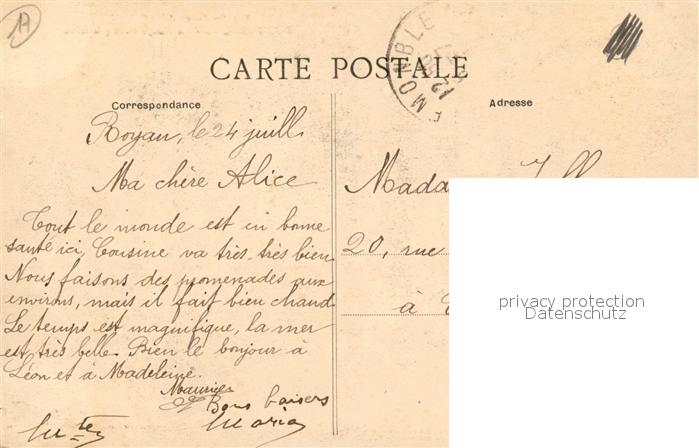 17
CARTE POSTALE
Correspondance
Adresse
Royan, le 24 juill.
Ma chère Alice
Tout le monde est en bonne
santé ici, Cousine va très-très bien
Nous faisons des promenades aux
environs, mais il fait bien chaud
Le temps est magnifique, la mer
est très belle. Bien le bonjour à
Léon et à Madeleine.
Maurice
Bons baisers
Maria
20, rue
à
privacy protection
Datenschutz